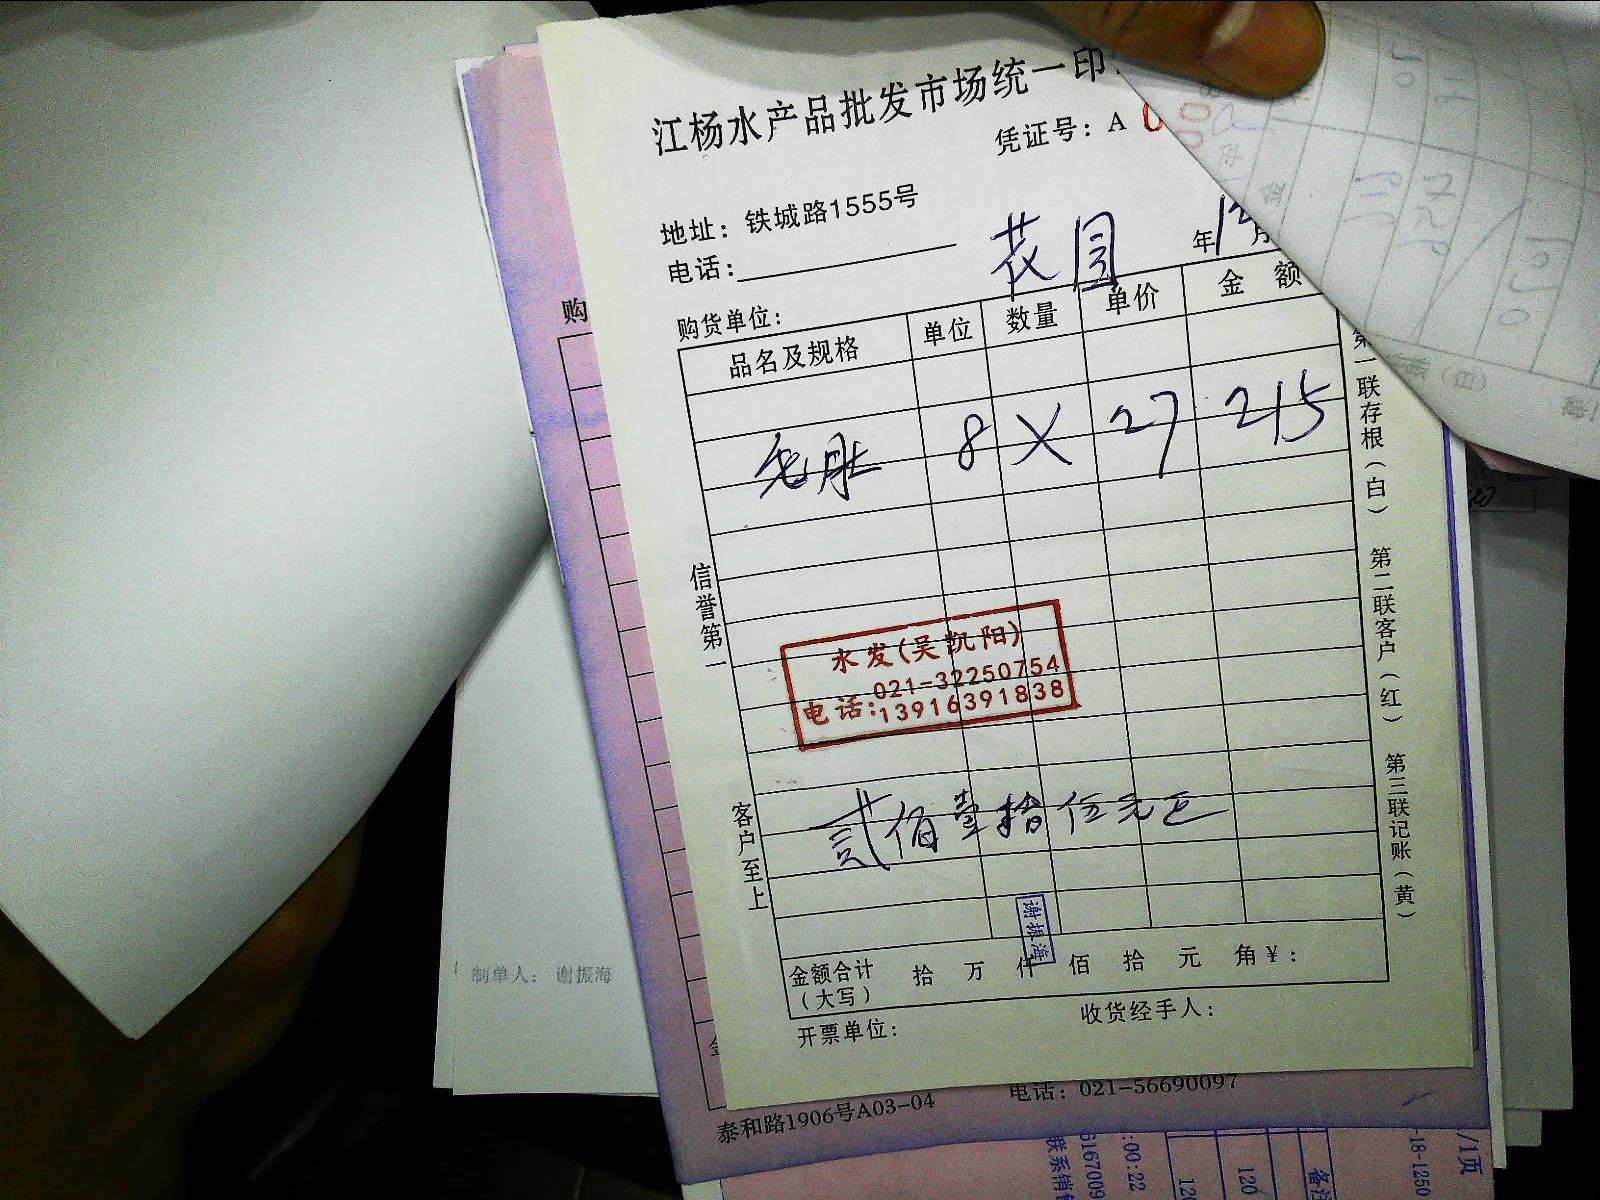 江杨水产品批发市场统一印
凭证号：A
地址：铁城路1555号
电话：
花园
年 12 月
购货单位：
品名及规格 单位 数量 单价 金额
毛肚 8 X 27 215
信誉第一
水发(吴凯阳)
021-32250754
电话:13916391838
贰佰壹拾伍元正
客户至上
谢振海
金额合计 拾 万 仟 佰 拾 元 角 ¥：
（大写）
开票单位：
收货经手人：
第一联存根（白） 第二联客户（红） 第三联记账（黄）
购
制单人： 谢振海
泰和路1906号A03-04
电话：021-56690097
:00:22
120
-18-1250
/1页